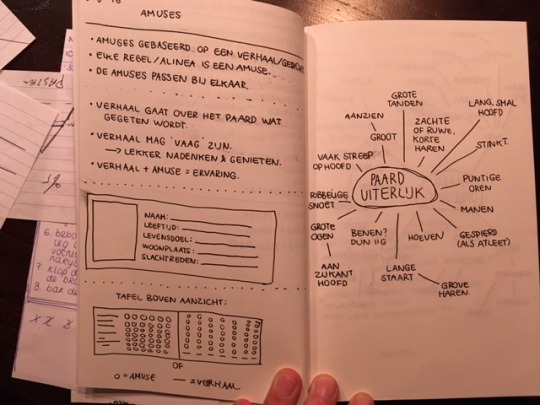 AMUSES
• AMUSES GEBASEERD OP EEN VERHAAL/GEDICHT
• ELKE REGEL/ALINEA IS EEN AMUSE.
• DE AMUSES PASSEN BIJ ELKAAR.
• VERHAAL GAAT OVER HET PAARD WAT
GEGETEN WORDT.
• VERHAAL MAG 'VAAG' ZIJN.
→ LEKKER NADENKEN & GENIETEN.
• VERHAAL + AMUSE = ERVARING.
NAAM:
LEEFTIJD:
LEVENSDOEL:
WOONPLAATS:
SLACHTREDEN:
TAFEL BOVEN AANZICHT:
OF
O = AMUSE — = VERHAAL.
PAARD
UITERLIJK
GROTE
TANDEN
AANZIEN
GROOT
ZACHTE
OF RUWE,
KORTE
HAREN
LANG, SMAL
HOOFD
STINKT
VAAK STREEP
OP HOOFD
PUNTIGE
OREN
RIBBELIGE
SNOET
MANEN
GROTE
OGEN
BENEN?
DUN
HOEVEN
GESPIERD
(ALS ATLEET)
AAN
ZIJKANT
HOOFD
LANGE
STAART
GROVE
HAREN